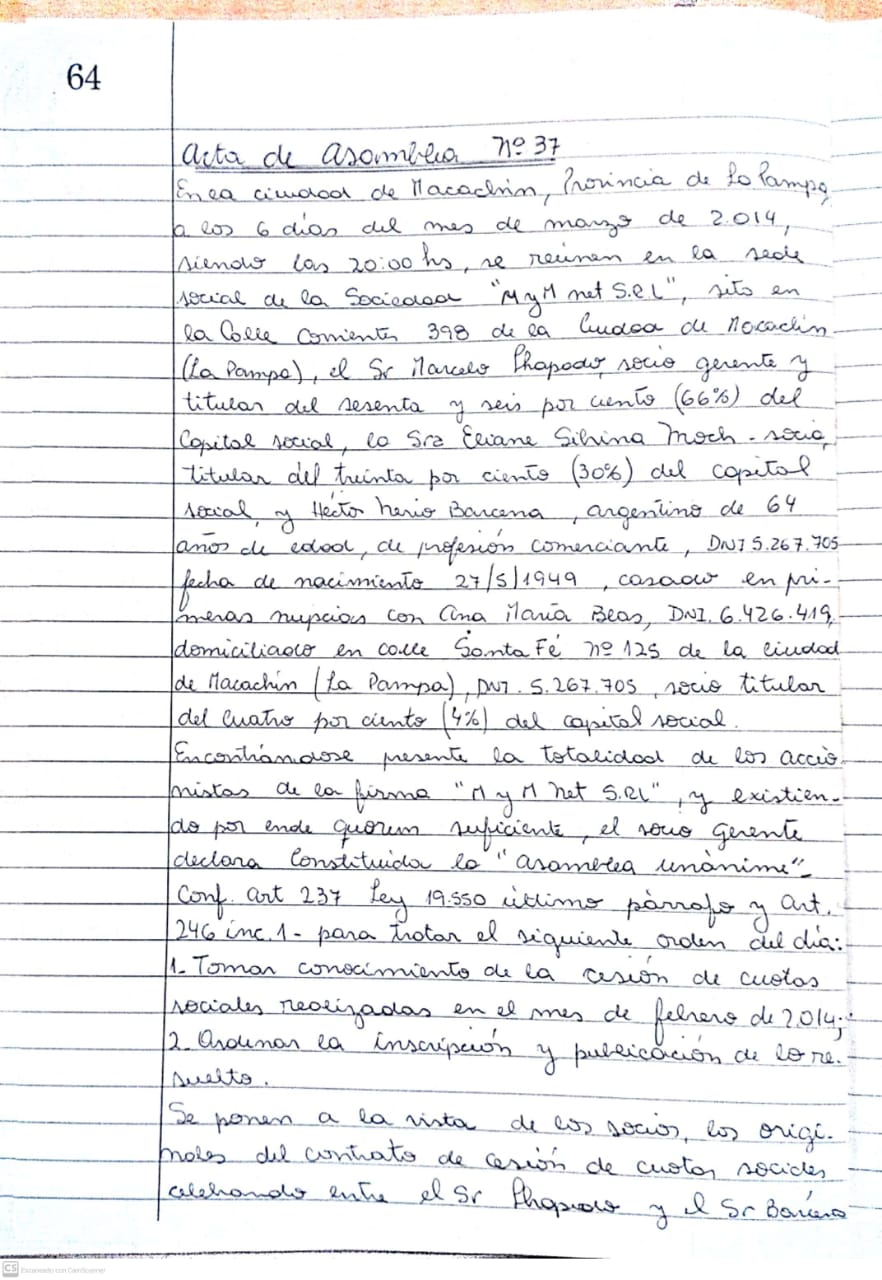 64
Acta de Asamblea Nº 37
En la ciudad de Macachín, Provincia de La Pampa,
a los 6 días del mes de marzo de 2.014,
siendo las 20:00 hs, se reúnen en la sede
social de la Sociedad "M y M net S.R.L", sito en
la Calle Corrientes 398 de la Ciudad de Macachín
(La Pampa), el Sr Marcelo, socio gerente y
titular del sesenta y seis por ciento (66%) del
Capital social, la Sra Eliane Silvina Moch - socia,
titular del treinta por ciento (30%) del capital
social, y Héctor Nerio Barcena, argentino de 64
años de edad, de profesión comerciante, DNI 5.267.705
fecha de nacimiento 27/5/1949, casado en pri-
meras nupcias con Ana María Beas, DNI. 6.426.419,
domiciliado en calle Santa Fé nº 125 de la ciudad
de Macachín (La Pampa), DNI. 5.267.705, socio titular
del cuatro por ciento (4%) del capital social.
Encontrándose presente la totalidad de los accio-
nistas de la firma "M y M Net S.RL", y existien-
do por ende quorum suficiente, el socio Gerente
declara Constituida la "asamblea unánime"-
Conf. Art 237 Ley 19.550 último párrafo y Art.
246 inc. 1- para tratar el siguiente orden del día:
1- Tomar conocimiento de la cesión de cuotas
sociales realizadas en el mes de febrero de 2.014;
2- Ordenar la inscripción y publicación de lo re-
suelto.
Se ponen a la vista de los socios, los origi-
nales del contrato de cesión de cuotas sociales
celebrando entre el Sr y el Sr Barcena
CS Escaneado con CamScanner